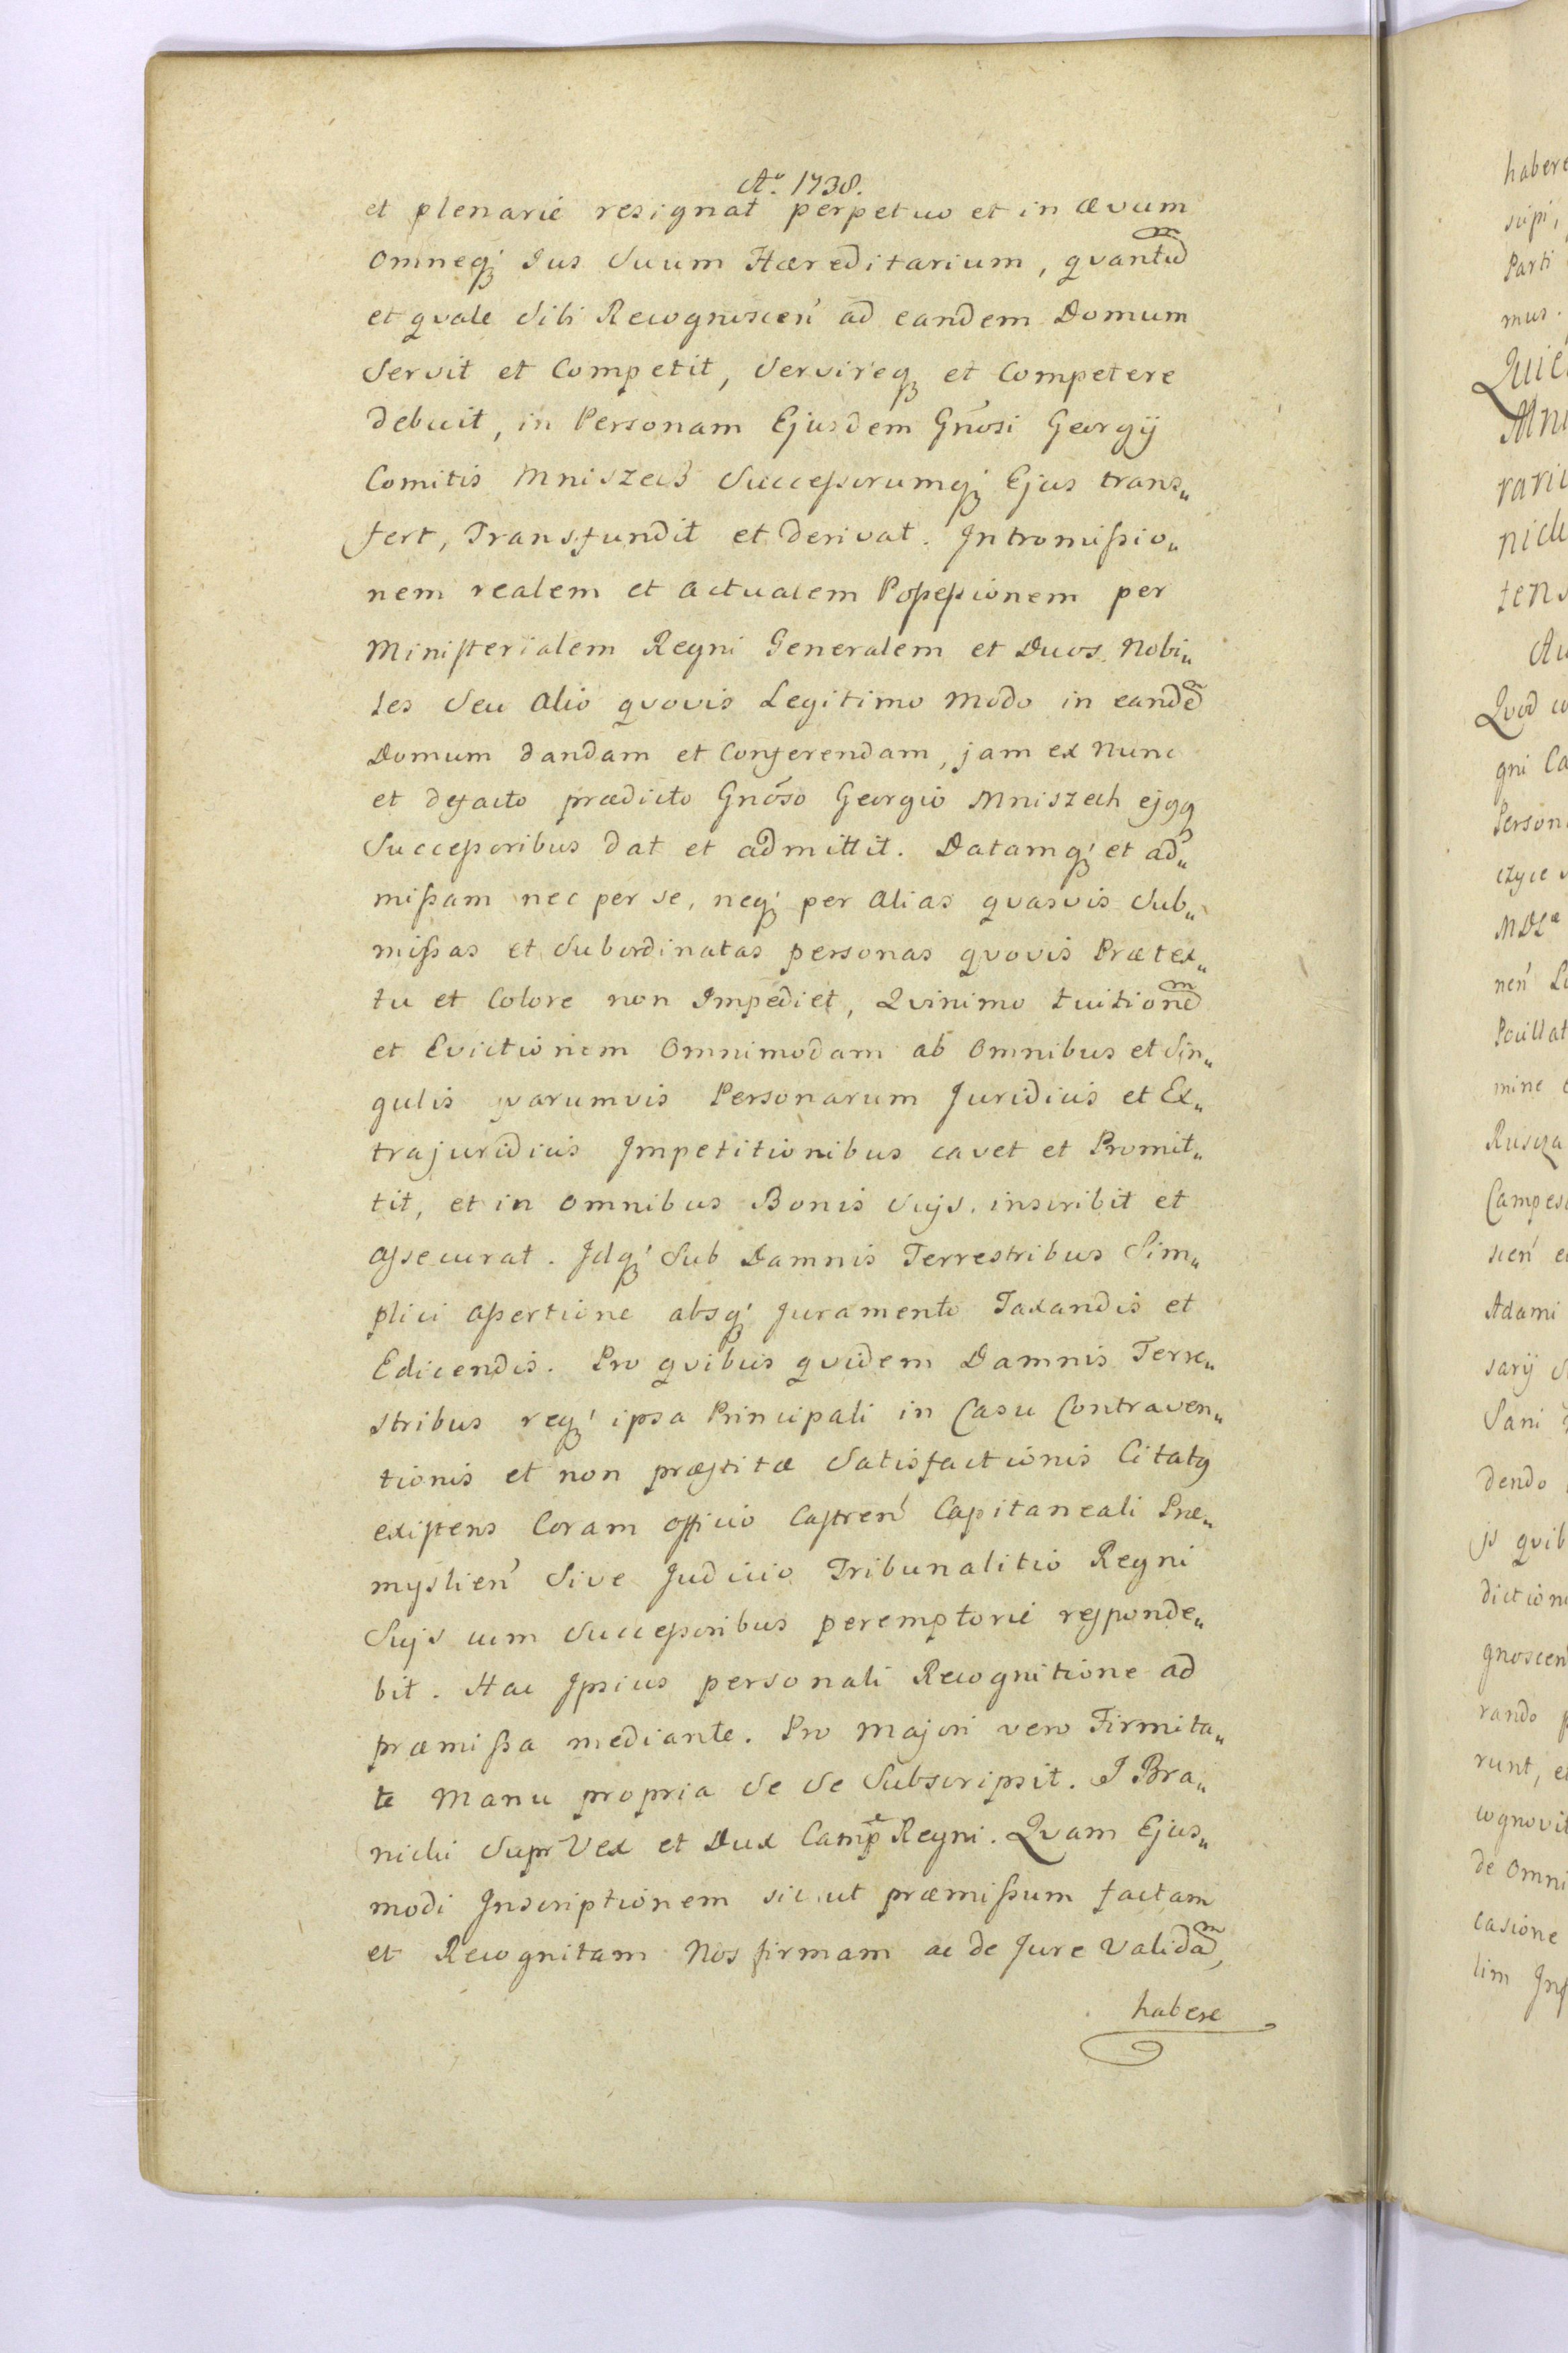 Aº. 1738.
et plenarie resignat perpetuo et in ævum
omneq; Ius Suum Hæreditarium, qvantũ
et qvale Sibi Recognoscen' ad eandem Domum
Servit et Competit, Servireq; et Competere
debuit, in Personam Ejusdem Gnõsi Georgij
Comitis Mniszech Successorumq; Ejus trans„
fert, Transfundit et derivat. Intromissio„
nem realem et actualem Possessionem per
Ministerialem Regni Generalem et Duos Nobi„
les Seu alio qvovis Legitimo modo in eandẽ
Domum dandam et Conferendam, jam ex Nunc
et defacto prædicto Gnõso Georgio Mniszech ejqq
Successoribus dat et admittit. Datamq; et ad„
missam nec per se, neq; per alias qvasvis Sub„
missas et Subordinatas personas qvovis Prætex„
tu et Colore non Impediet, Qvinimo tuitionẽ
et Evictionem Omnimodam ab Omnibus et Sin„
gulis qvarumvis Personarum Juridicis et Ex„
trajuridicis Impetitionibus cavet et Promit„
tit, et in Omnibus Bonis Suijs inscribit et
assecurat. Idq; Sub Damnis Terrestribus Sim„
plici assertione absq; Juramento Taxandis et
Edicendis. Pro qvibus qvidem Damnis Terre„
stribus req; ipsa Principali in Casu Contraven„
tionis et non præstitæ Satisfactionis Citatq
existens Coram officio Castren' Capitaneali Præ„
myslien' Sive Judicio Tribunalitio Regni
Suijs cum Successoribus peremptorie responde„
bit. Hac Ipsius personali Recognitione ad
præmissa mediante. Pro majori vero Firmita„
te Manu propria Se Se Subscripsit. I Bra„
nicki Supr Vex et Dux Campe Regni. Qvam Ejus„
modi Inscriptionem sic ut præmissum factam
et Recognitam Nos firmam ac de Jure Validã,
habere
habere
Parti
mus.
rari
tens
Qvod
gni Ca
Person
mine
Campes
Adami
sarij
Sani
dendo
js qvib
diction
gnoscen
rando
runt, e
cognovit
de Omni
casione
lim Ins